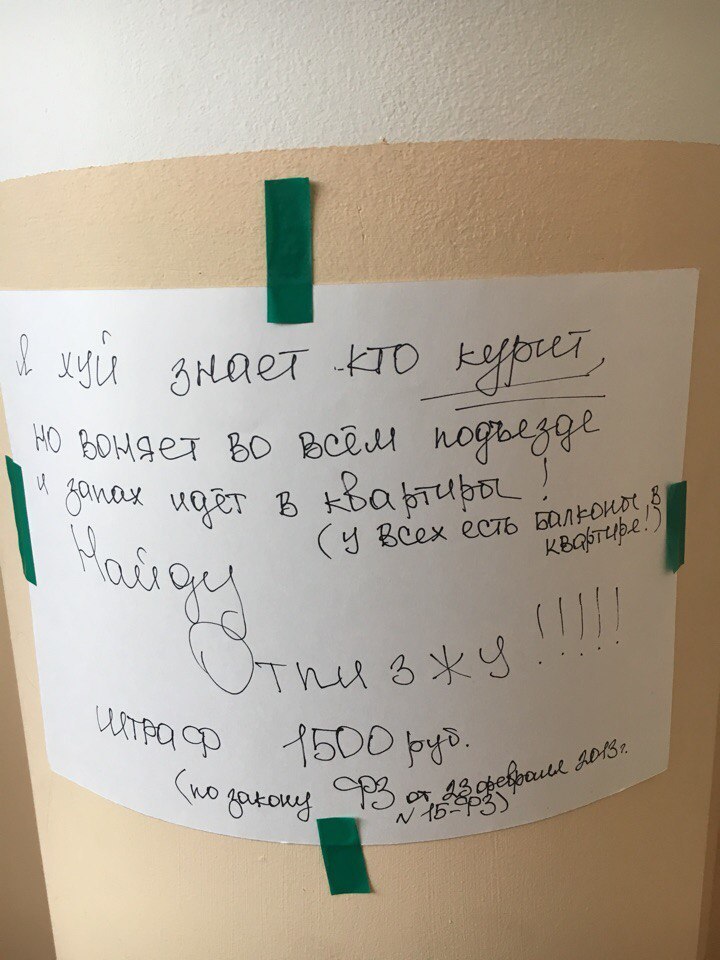 Я хуй знает кто курит,
но воняет во всём подъезде
и запах идёт в квартиры!
(у всех есть балконы в
квартире!)
Найду
Отпизжу!!!!!
штраф 1500 руб.
(по закону ФЗ от 23 февраля 2013г.
N 15-ФЗ)